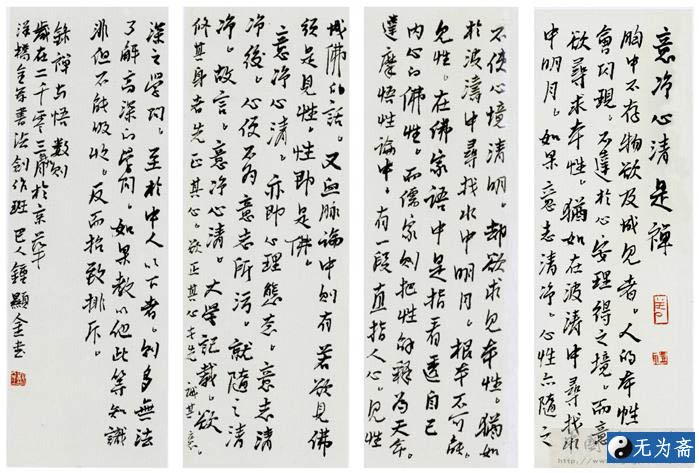 意净心清是禅
胸中不存物欲及成见者。人的本性
会闪现。不达於心安理得之境。而意
欲寻求本性。犹如在波涛中寻找水
中明月。如果意志清净。心性亦随之
不使心境清明。却欲求见本性。犹如
於波涛中寻找水中明月。根本不可能。
见性。在佛家语中是指看透自己
内心的佛性。而儒家则把性解释为天命。
达摩悟性论中。有一段直指人心。见性
成佛的话。又血脉论中则有若欲见佛
须是见性。性即是佛。
意净心清。亦即心理态意。意志清
净后。心便不为意志所污。就随之清
净。故言。意净心清。大学记载。欲
修其身者先正其心。欲正其心者先诚其意。
深之学问。至於中人以下者。则多无法
了解高深的学问。如果教以他此等知识
非但不能吸收。反而招致排斥。
录禅与悟数则
岁在二千零三年於京华
巴人钟显金书
无为斋